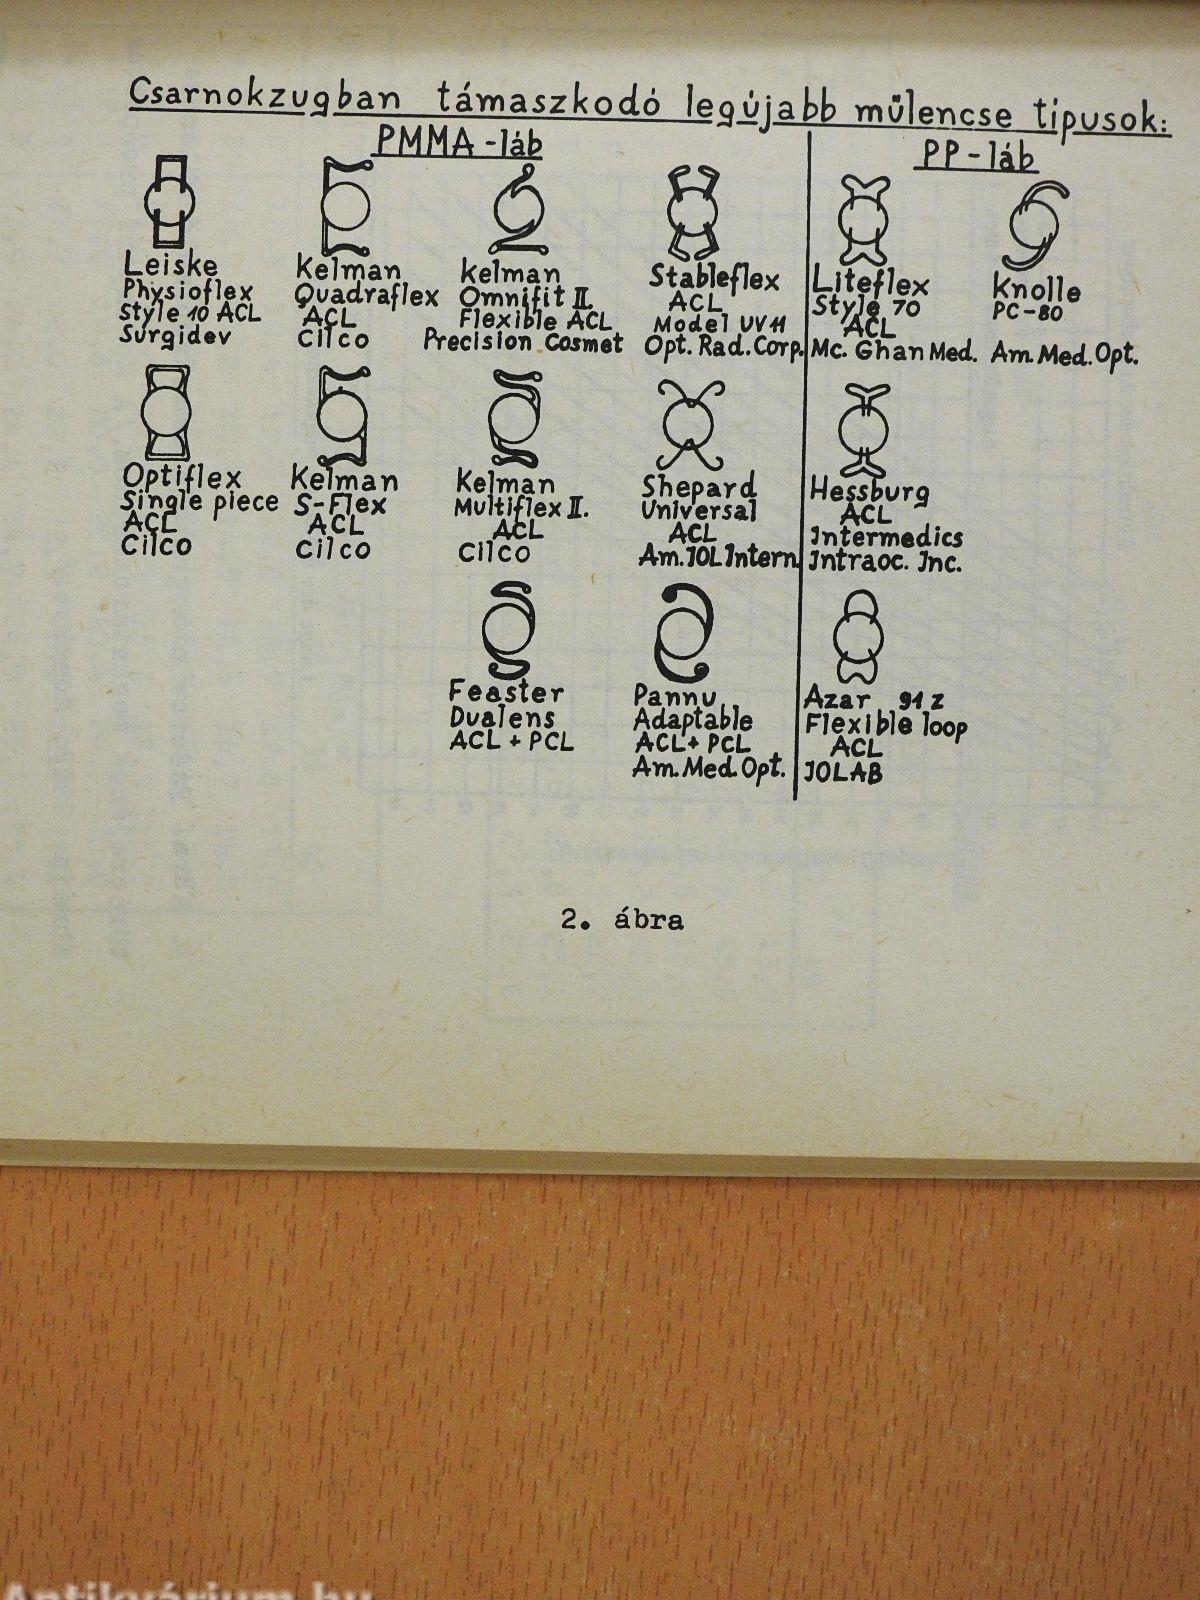 Csarnokzugban támaszkodó legújabb műlencse tipusok:
PMMA-láb
PP-láb
Leiske
Physioflex
Style 10 ACL
Surgidev
Kelman
Quadraflex
ACL
Cilco
Kelman
Omnifit II.
Flexible ACL
Precision Cosmet
Stableflex
ACL
Model UV11
Opt. Rad. Corp.
Liteflex
Style 70
ACL
Mc. Ghan Med.
Knolle
PC-80
Am. Med. Opt.
Optiflex
Single piece
ACL
Cilco
Kelman
S-Flex
ACL
Cilco
Kelman
Multiflex II.
ACL
Cilco
Shepard
Universal
ACL
Am. IOL Intern
Hessburg
ACL
Intermedics
Intraoc. Inc.
Feaster
Dualens
ACL + PCL
Pannu
Adaptable
ACL + PCL
Am. Med. Opt.
Azar 91 Z
Flexible loop
ACL
IOLAB
2. ábra
Antikvárium.hu